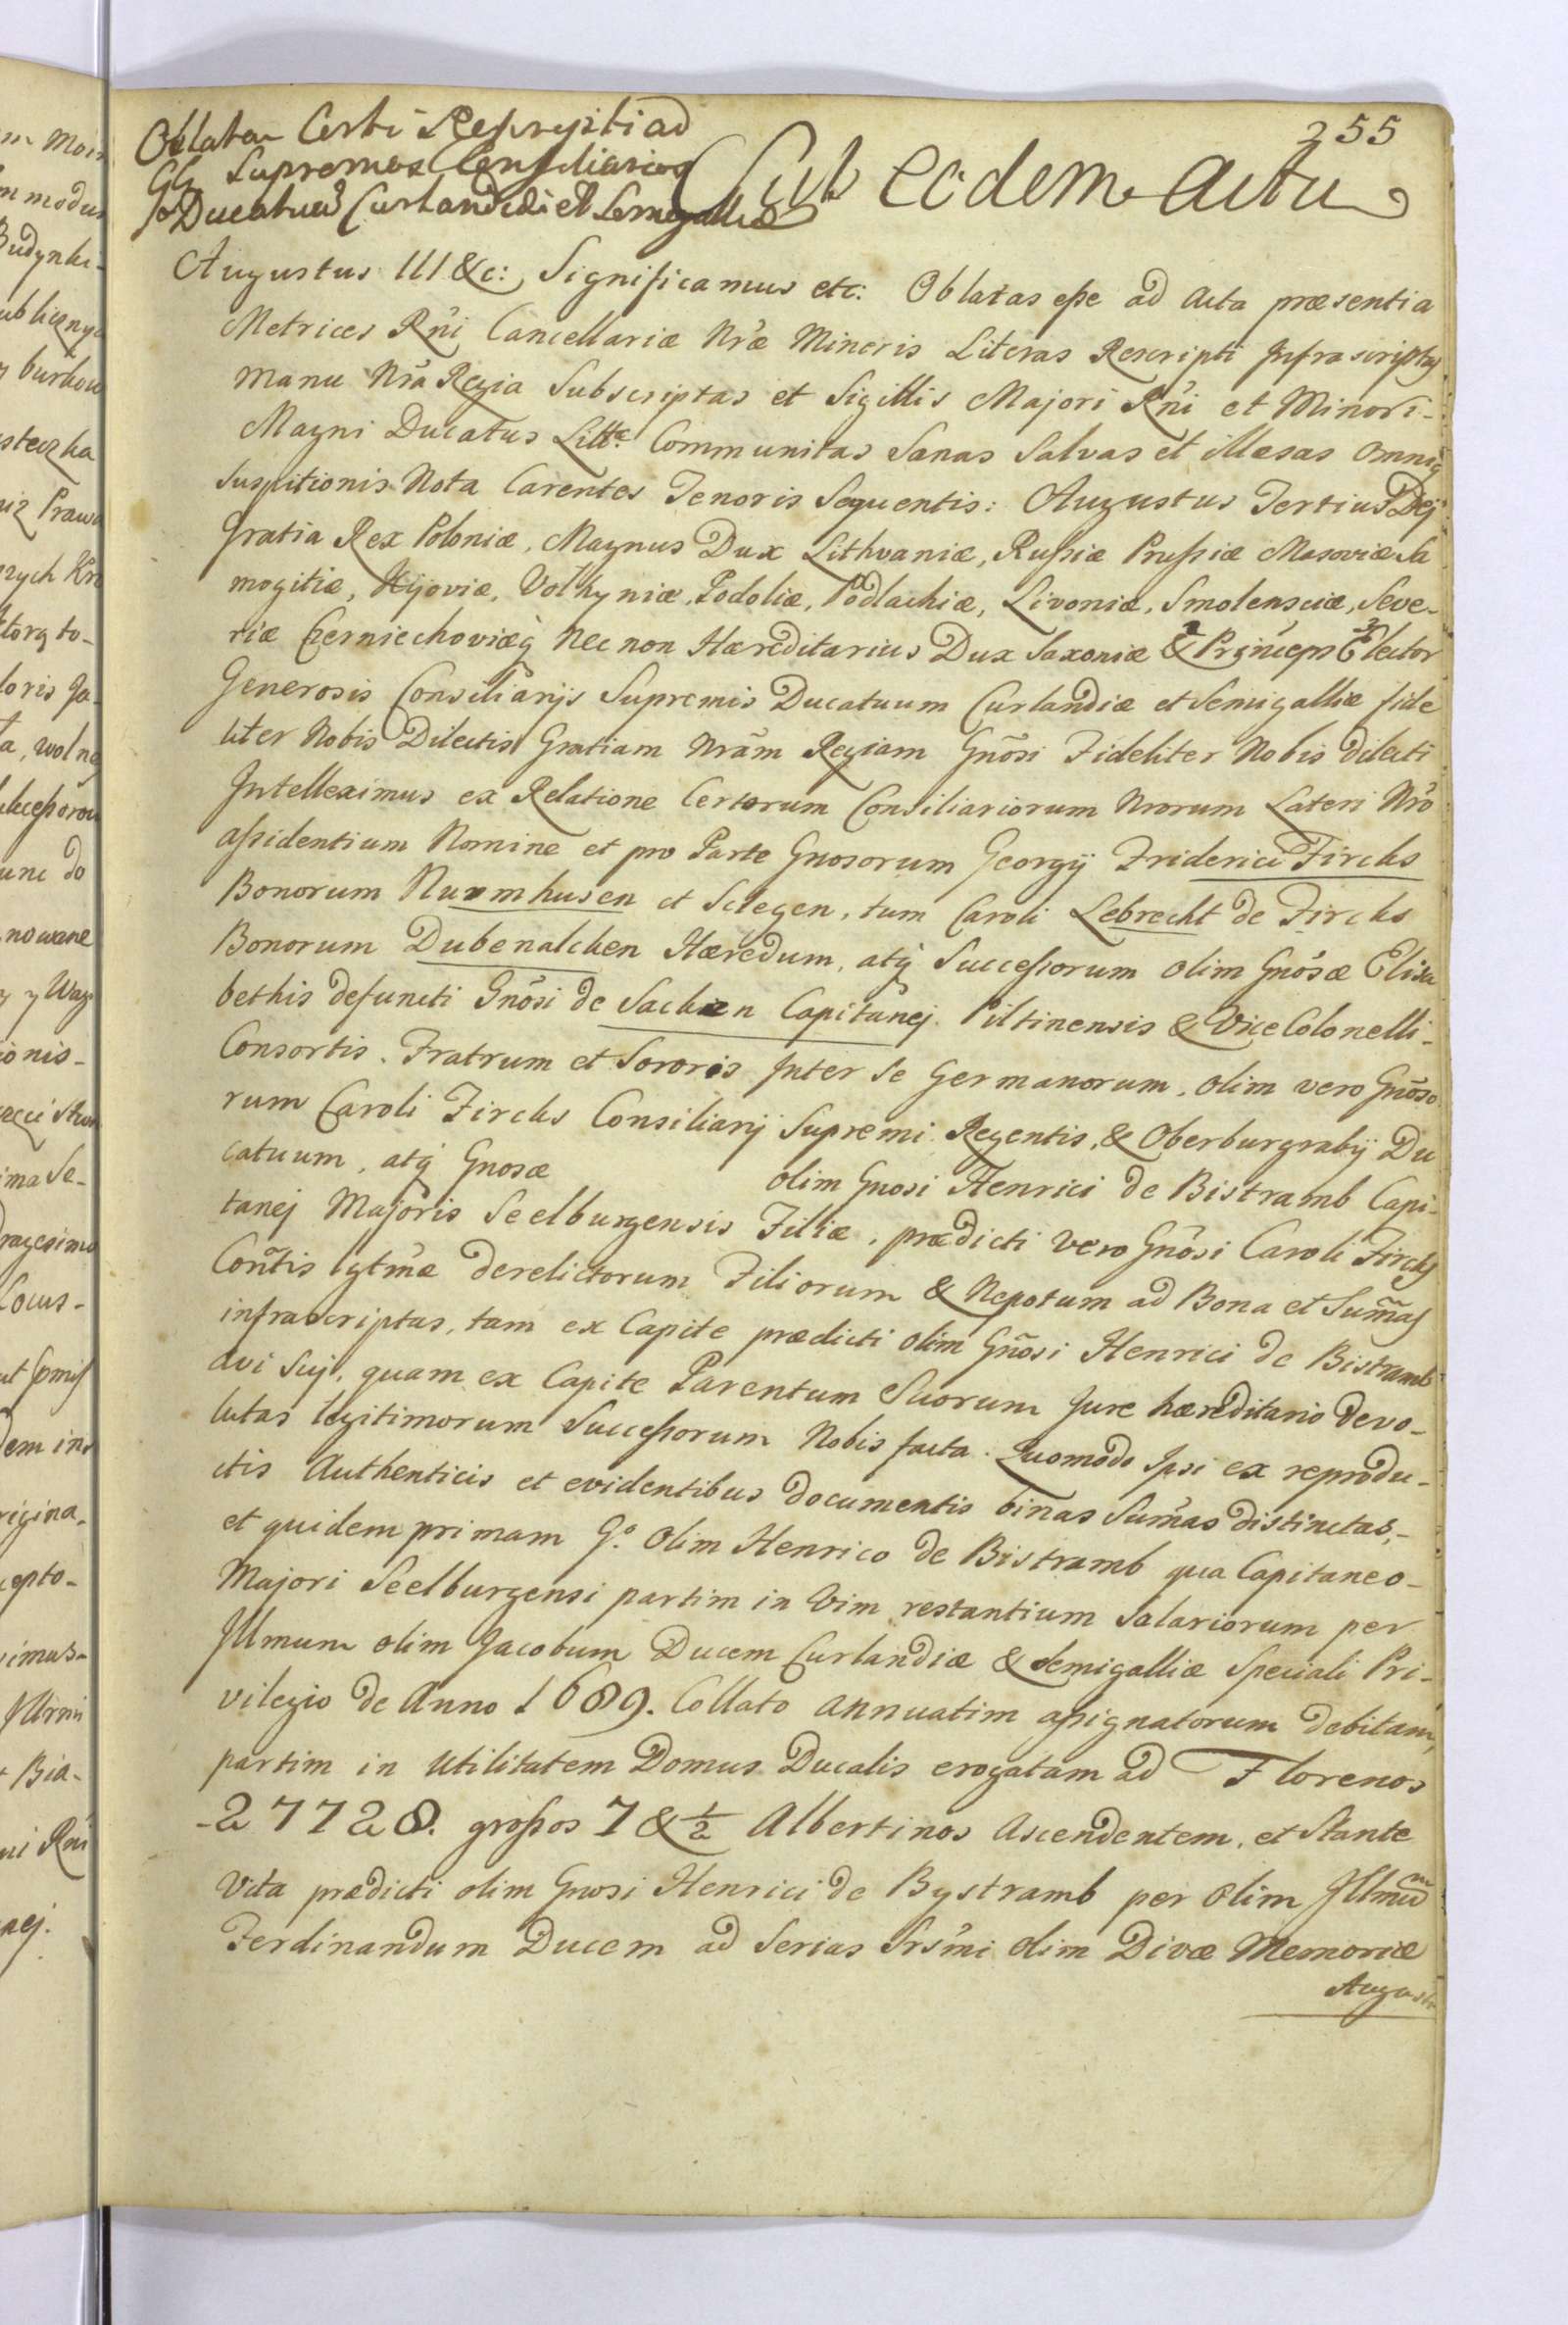 255
Oblata Certi Rescripti ad
GG Supremos Consiliarios
Ducatuũ Curlandiæ et Semigalliæ
Sub eodem Actu
Augustus III &c: Significamus etc: Oblatas esse ad Acta præsentia
Metrices Rńi Cancellariæ Nræ Minoris Literas Rescripti Infrascriptas
Manu Nra Regia Subscriptas et Sigillis Majori Rńi et Minori
Magni Ducatus Litt: Communitas Sanas Salvas et illæsas omniq
Suspitionis Nota Carentes Tenoris Sequentis: Augustus Tertius Dej
Gratia Rex Poloniæ, Magnus Dux Lithvaniæ, Russiæ Prussiæ Masoviæ Sa
mogitiæ, Kijoviæ, Volhyniæ, Podoliæ, Podlachiæ, Livoniæ, Smolensciæ, Seve-
riæ Czerniechoviæq Nec non Hæreditarius Dux Saxoniæ & Princeps Elector
Generosis Consiliarijs Supremis Ducatuum Curlandiæ et Semigalliæ fide
liter Nobis Dilectis Gratiam Nram Regiam Gnosi Fideliter Nobis dilecti
Intelleximus ex Relatione Certorum Consiliariorum Nrorum Lateri Nro
assidentium Nomine et pro Parte Gnosorum Georgij Friderici Fircks
Bonorum Nurmhusen et Sciegen, tum Caroli Lebrecht de Fircks
Bonorum Dubenalcken Hæredum, atq Successorum olim Gnosæ Elisa
bethis defuncti Gnosi de Sacken Capitanej Piltinensis & Vice Colonelli
Consortis. Fratrum et Sororis Inter se Germanorum, olim vero Gnoso
rum Caroli Fircks Consiliarij Supremi Regentis, & Oberburgrabij Du
catuum, atq Gnosæ olim Gnosi Henrici de Bistramb Capi-
tanej Majoris Seelburgensis Filiæ, prædicti vero Gnosi Caroli Fircks
Contis lgtmæ derelictorum Filiorum & Nepotum ad Bona et Sumas
infrascriptas, tam ex Capite prædicti olim Gnosi Henrici de Bistramb
avi Suj, quam ex Capite Parentum Suorum Jure hæreditario devo-
lutas legitimorum Successorum Nobis facta. Quomodo Ipsi ex reprodu-
ctis Authenticis et evidentibus documentis binas Sumas distinctas,
et quidem primam G.o olim Henrico de Bistramb qua Capitaneo
Majori Seelburgensi partim in Vim restantium Salariorum per
Illmum olim Jacobum Ducem Curlandiæ & Semigalliæ Speciali Pri-
vilegio de Anno 1689. Collato annuatim assignatorum debitam,
partim in Utilitatem Domus Ducalis erogatam ad Florenos
27728. grossos 7 & 1/2 Albertinos Ascendentem, et Stante
Vita prædicti olim Gnosi Henrici de Bystramb per olim Illmum
Ferdinandum Ducem ad Serias Srsmi olim Divæ Memoriæ
Augusti